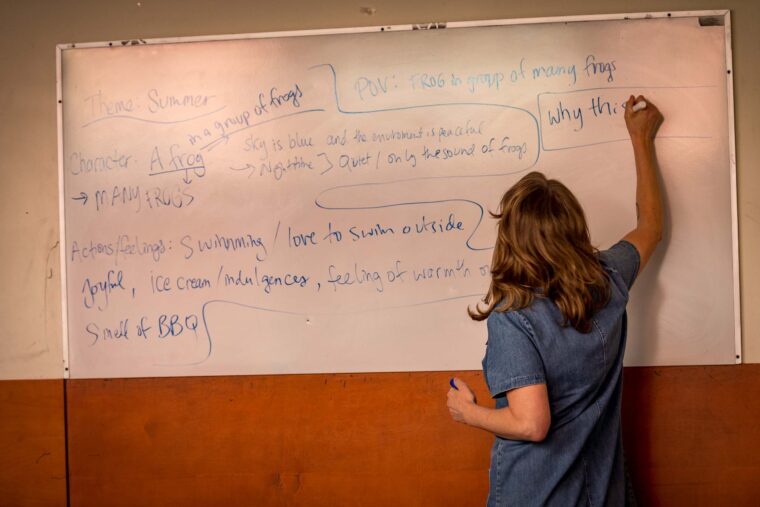 Theme: Summer
in a group of frogs
POV: FROG in group of many frogs
why this
Character: A frog
→ MANY FROGS
sky is blue and the enviroment is peaceful
→ Nighttime → Quiet / only the sound of frogs
Actions/feelings: Swimming / love to swim outside
Joyful, ice cream/indulgences, feeling of warmth
Smell of BBQ